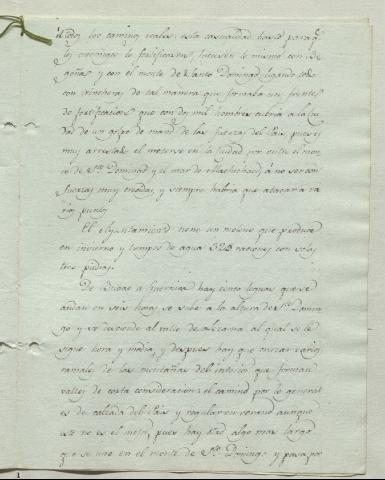 todos los caminos reales: esta casualidad bastó para q.e
los enemigos lo fortificaren, hiciesen lo mismo con Be-
goña y con el monte de Santo Domingo, ligando todo
con trincheras de tal manera que formaba un frente
de fortificacion que con dos mil hombres cubria a la Ciu-
dad de un golpe de mano de las fuerzas del Pais, pues es
muy arrestado el meterse en la Ciudad por entre el mon-
te de S.to Domingo y el mar de á no ser con
fuerzas muy crecidas, y siempre habria que atacar a va-
rios puntos
El Ayuntamiento tiene un molino que produce
en invierno y tiempo de agua raciones con solas
tres piedras.
De Bilbao a hay cinco leguas que se
andan en seis horas; se sube a la altura de S.to Domin-
go y se desciende al valle de al qual se le
sigue hora y media, y despues hay que cruzar varios
ramales de las montañas del interior que forman
valles de corta consideracion: el camino por lo general
es de calzada del Pais y regular en verano aunque
este no es el mejor, pues hay otro algo mas largo
que se une en el monte de S.to Domingo y pasa por
1